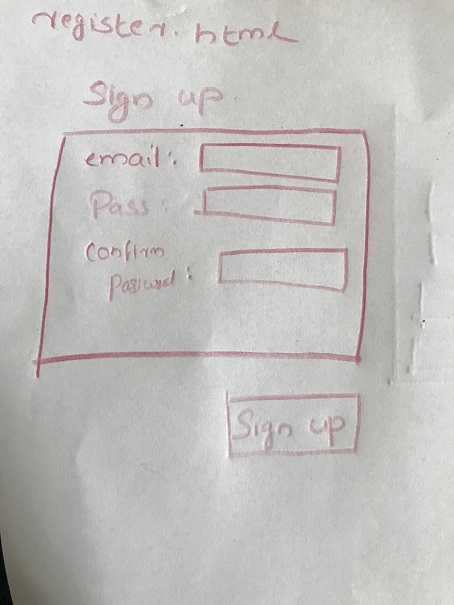 register.html
Sign up
email:
Pass:
Confirm
Password:
Sign up